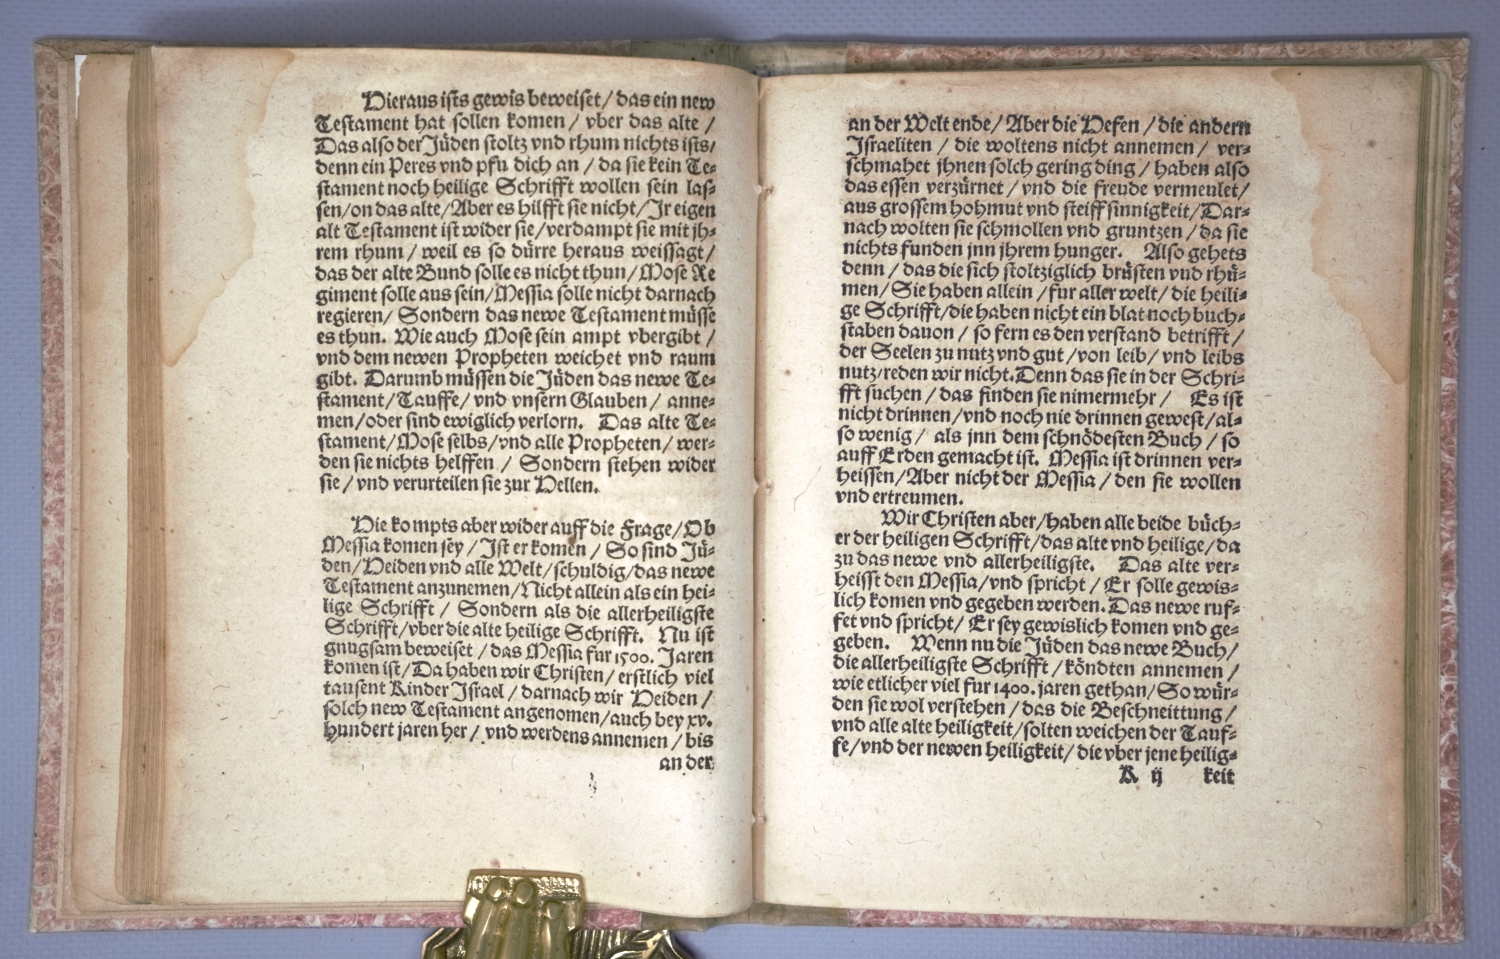 Hieraus ists gewis beweiset / das ein new
Testament hat sollen komen / vber das alte /
Das also der Jüden stoltz vnd rhum nichts ists /
denn ein Peres vnd pfu dich an / da sie kein Te⸗
stament noch heilige Schrifft wollen sein las⸗
sen / on das alte / Aber es hilfft sie nicht / Jr eigen
alt Testament ist wider sie / verdampt sie mit jh⸗
rem rhum / weil es so dürre heraus weissagt /
das der alte Bund solle es nicht thun / Mose Re
giment solle aus sein / Messia solle nicht darnach
regieren / Sondern das newe Testament müsse
es thun. Wie auch Mose sein ampt vbergibt /
vnd dem newen Propheten weichet vnd raum
gibt. Darumb müssen die Jüden das newe Te⸗
stament / Tauffe / vnd vnsern Glauben / anne⸗
men / oder sind ewiglich verlorn. Das alte Te⸗
stament / Mose selbs / vnd alle Propheten / wer⸗
den sie nichts helffen / Sondern stehen wider
sie / vnd verurteilen sie zur Hellen.
Hie kompts aber wider auff die Frage / Ob
Messia komen sey / Jst er komen / So sind Jü⸗
den / Heiden vnd alle Welt / schuldig / das newe
Testament anzunemen / Nicht allein als ein hei⸗
lige Schrifft / Sondern als die allerheiligste
Schrifft / vber die alte heilige Schrifft. Nu ist
gnugsam beweiset / das Messia fur 1500. Jaren
komen ist / Da haben wir Christen / erstlich viel
tausent Kinder Jsrael / darnach wir Heiden /
solch new Testament angenomen / auch bey xv.
hundert jaren her / vnd werdens annemen / bis
an der
an der Welt ende / Aber die Hefen / die andern
Jsraeliten / die woltens nicht annemen / ver⸗
schmahet jhnen solch gering ding / haben also
das essen verzürnet / vnd die freude vermeulet /
aus grossem hohmut vnd steiffsinnigkeit / Dar⸗
nach wolten sie schmollen vnd gruntzen / da sie
nichts funden jnn jhrem hunger. Also gehets
denn / das die sich stoltziglich brüsten vnd rhü⸗
men / Sie haben allein / fur aller welt / die heili⸗
ge Schrifft / die haben nicht ein blat noch buch⸗
staben dauon / so fern es den verstand betrifft /
der Seelen zu nutz vnd gut / von leib / vnd leibs
nutz / reden wir nicht. Denn das sie in der Schri⸗
fft suchen / das finden sie nimermehr / Es ist
nicht drinnen / vnd noch nie drinnen gewest / al⸗
so wenig / als jnn dem schnödesten Buch / so
auff Erden gemacht ist. Messia ist drinnen ver⸗
heissen / Aber nicht der Messia / den sie wollen
vnd ertreumen.
Wir Christen aber / haben alle beide büch⸗
er der heiligen Schrifft / das alte vnd heilige / da
zu das newe vnd allerheiligste. Das alte ver⸗
heisst den Messia / vnd spricht / Er solle gewis⸗
lich komen vnd gegeben werden. Das newe ruf⸗
fet vnd spricht / Er sey gewislich komen vnd ge⸗
geben. Wenn nu die Jüden das newe Buch /
die allerheiligste Schrifft / köndten annemen /
wie etlicher viel fur 1400. jaren gethan / So wür⸗
den sie wol verstehen / das die Beschneittung /
vnd alle alte heiligkeit / solten weichen der Tauf⸗
fe / vnd der newen heiligkeit / die vber jene heilig⸗
K ij keit